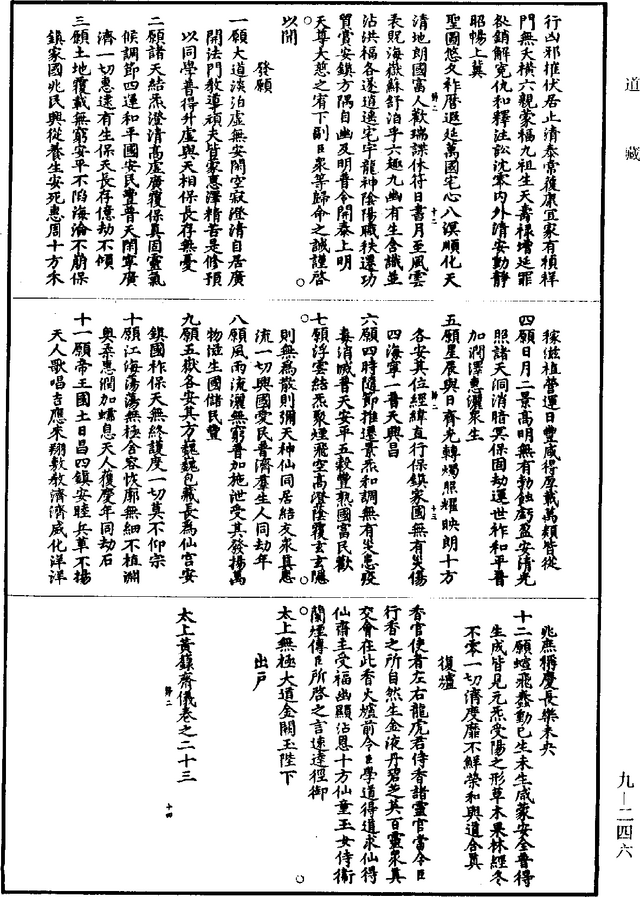 道藏
行凶邪摧伏居止清泰常復康宜家有禎祥
門無夭橫六親蒙福九祖生天壽祿增延罪
咎銷解冤仇和釋注訟沈零內外清安動靜
昭暢上冀
聖圖悠久祚曆遐延萬國宅心八溟順化天
清地朗國富人歡瑞諜休符日書月至風雲
表貺海嶽蘇舒泊乎六趣九幽有生含識並
沾洪福各遂逍遙宅宇龍神陰陽職秩遷功
賞安鎮方隅自幽及明普令開泰上明
天尊大慈之宥下副臣衆等歸命之誠謹啓
以聞
發願
一願大道淡泊虛無安閑空寂澄清自居廣
開法門教導頑夫皆蒙惠澤精苦是修預
以同學普得升虛與天相保長存無憂
二願諸天結炁澄清高虛廣覆保真固靈氣
候調節四運和平國安民豐普天閑寧廣
濟一切惠遠有生保天長存億劫不傾
三願土地覆載無窮安平不陷海淪不崩保
鎮家國兆民興從養生安死惠周十方禾
稼滋植營運日豐咸得厚載萬類皆從
四願日月二景高明無有勃蝕虧盈安清光
照諸天洞消暗冥保固劫運世祚和平普
加潤澤惠灑衆生
五願星辰與日齊光轉燭照耀映朗十方
各安其位經緯直行保鎮家國無有災傷
四海寧一普天興昌
六願四時隨節推遷景炁和調無有災患疫
毒消滅普天安平五穀豐熟國富民歡
七願浮雲結炁聚煙飛空高澄蔭覆玄玄隱
則無爲散則彌天神仙同居結友衆真惠
流一切興國愛民普濟羣生人同劫年
八願風雨流灑無窮普加施泄受其發揚萬
物滋生國儲民豐
九願五嶽各安其方巍巍包藏長爲仙宮安
鎮國祚保天無終護度一切莫不仰宗
十願江海蕩蕩無極含容恢廓無細不植淵
奧柔惠潤加蠕息天人復慶年同劫石
十一願帝王國土日昌四鎮安睦兵革不揚
天人歌唱吉應來翔敷教濟濟威化洋洋
兆庶稱慶長樂未央
十二願蝖飛蠢動已生未生咸蒙安全普得
生成皆見元炁受陽之形草木果林經冬
不零一切濟度靡不鮮榮和與道合真
復爐
香官使者左右龍虎君侍香諸靈官當令臣
行香之所自然生金液丹碧芝英百靈衆真
交會在此香火爐前令臣學道得道求仙得
仙齋主受福幽顯沾恩十方仙童玉女侍衛
蘭煙傳臣所啓之言速達徑御
太上無極大道金闕玉陛下
出戶
太上黃籙齋儀卷之二十三
九—二四六